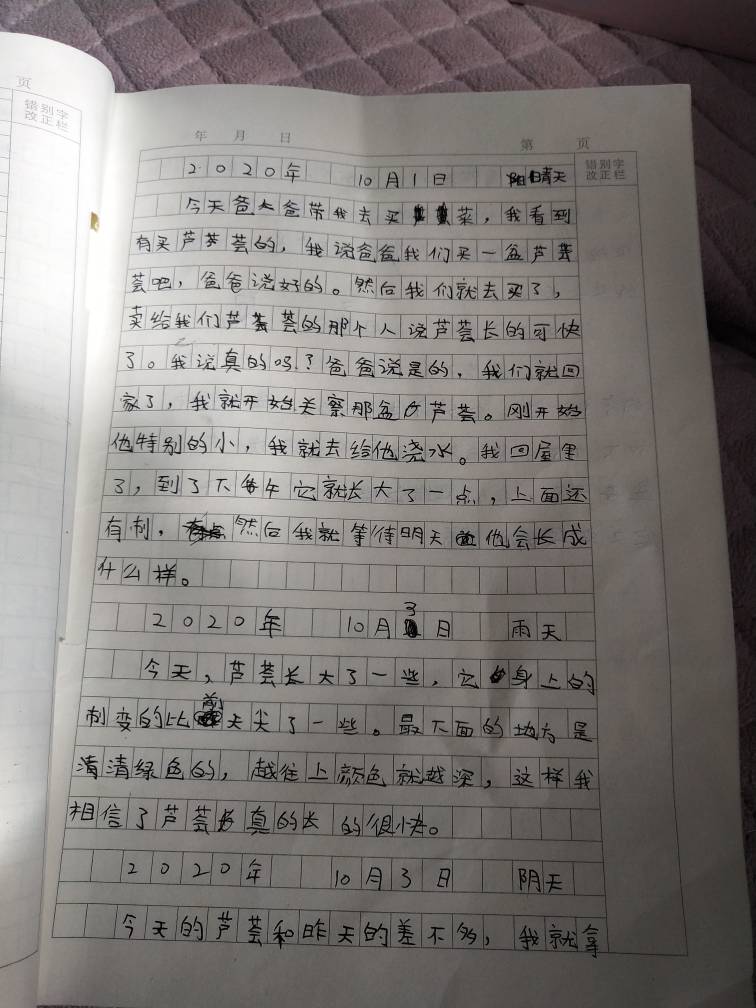 页
错别字
改正栏
年 月 日 第 页
错别字
改正栏
2020年 10月1日 晴天
今天爸爸带我去买菜，我看到
有买芦荟的，我说爸爸我们买一盆芦
荟吧，爸爸说好的。然后我们就去买了，
卖给我们芦荟的那个人说芦荟长的可快
了。我说真的吗？爸爸说是的，我们就回
家了，我就开始关察那盆芦荟。刚开始
他特别的小，我就去给他浇水。我回屋里
了，到了下午它就长大了一点，上面还
有刺，然后我就等待明天他会长成
什么样。
2020年 10月3日 雨天
今天，芦荟长大了一些，它身上的
刺变的比前天尖了一些。最下面的地方是
清清绿色的，越往上颜色就越深，这样我
相信了芦荟真的长的很快。
2020年 10月3日 阴天
今天的芦荟和昨天的差不多，我就拿